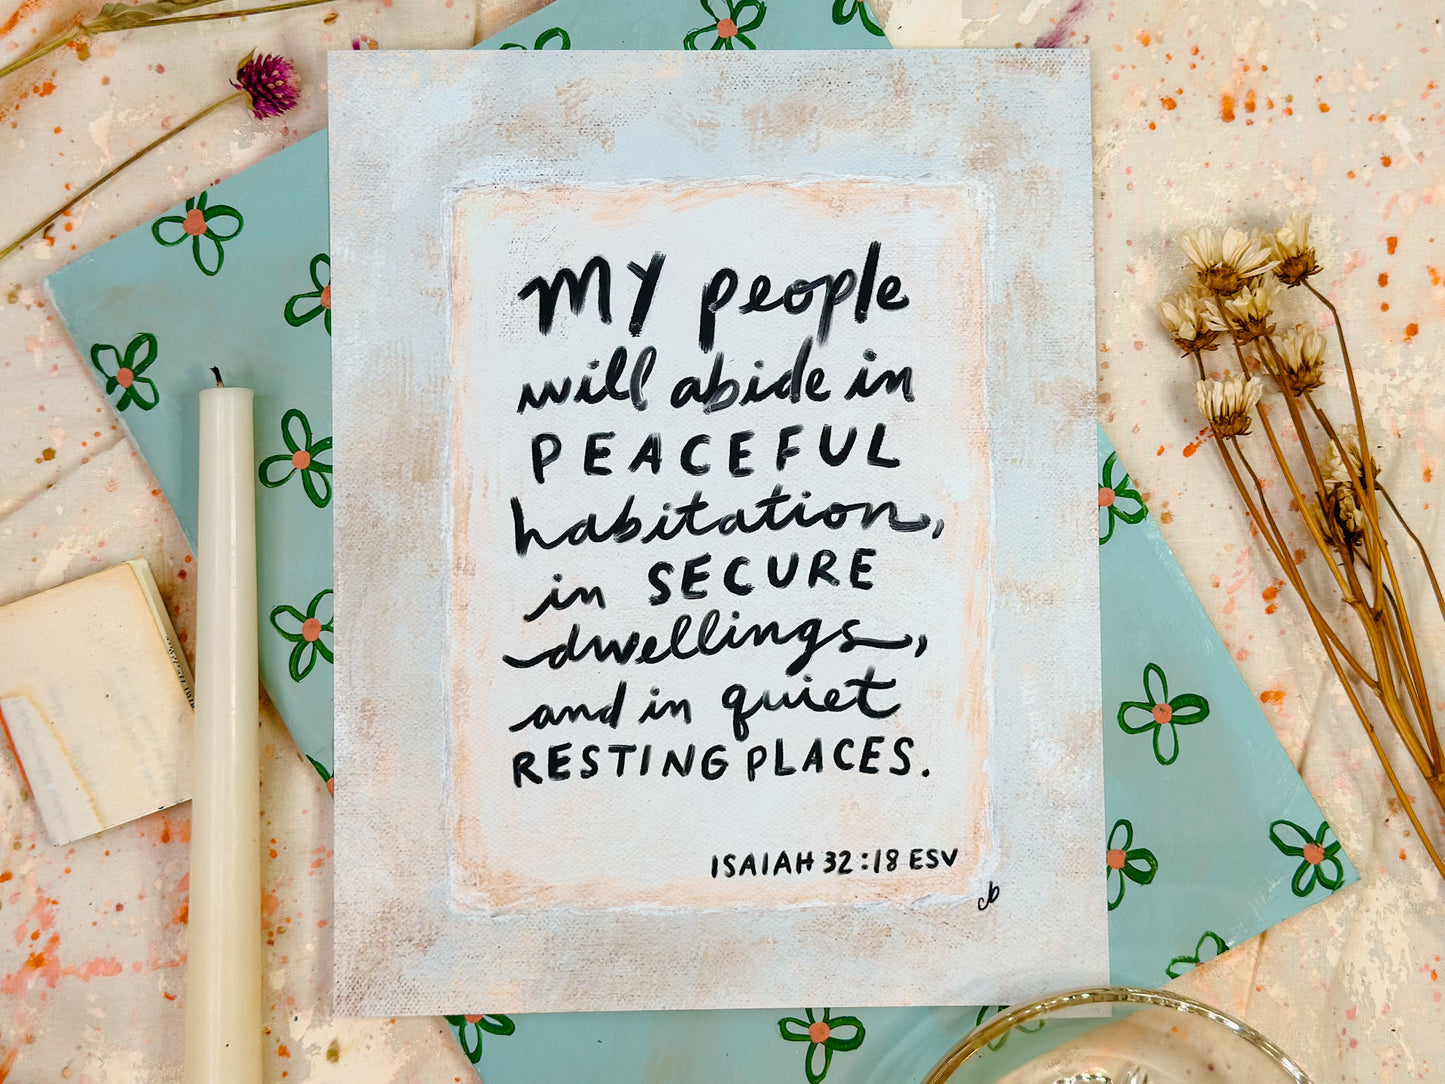 My people
will abide in
PEACEFUL
habitation,
in SECURE
dwellings,
and in quiet
RESTING PLACES.
ISAIAH 32:18 ESV
cb